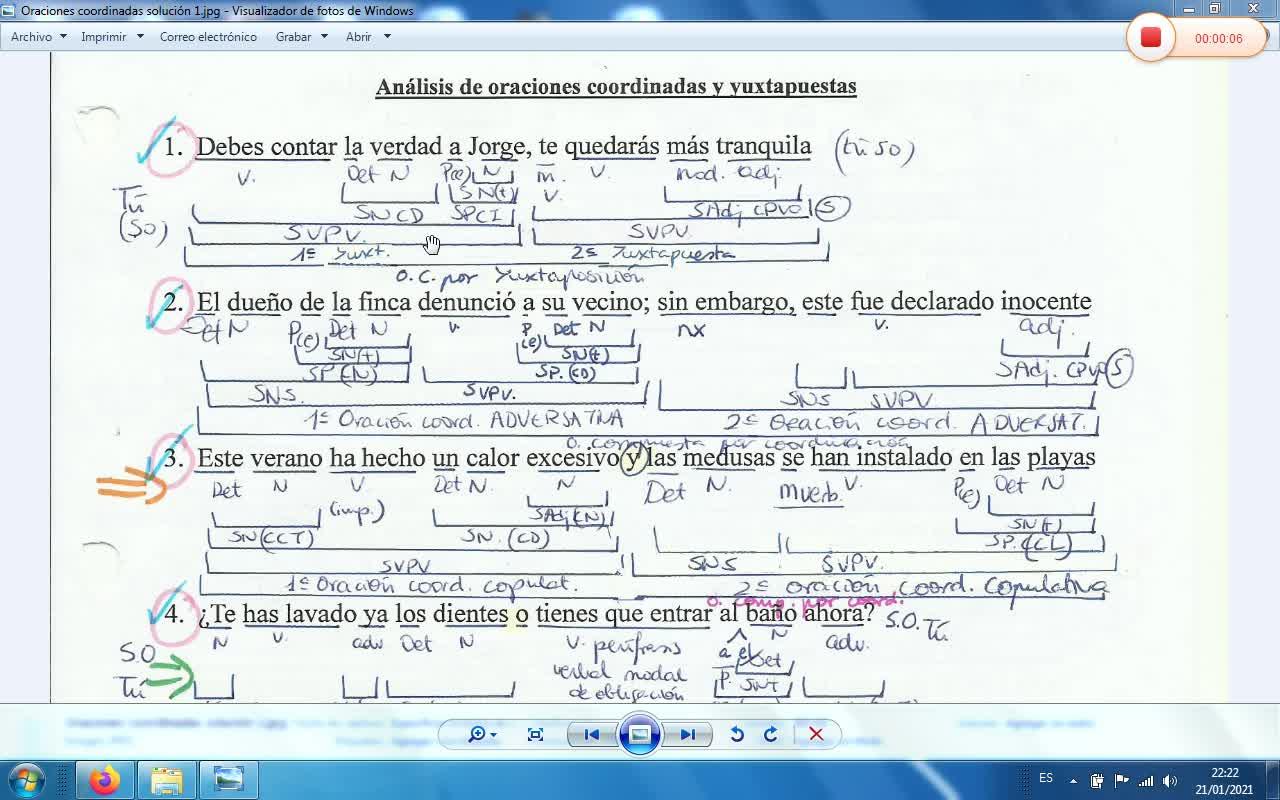 Oraciones coordinadas solución 1.jpg - Visualizador de fotos de Windows
Archivo Imprimir Correo electrónico Grabar Abrir
00:00:06
Análisis de oraciones coordinadas y yuxtapuestas
1. Debes contar la verdad a Jorge, te quedarás más tranquila (tú SO)
V. Det N P(e) N m. V. mod. adj
Tú SN(t) V.
(SO) SN CD SPCI SAdj CPVO S
SVPV. SVPV.
1ª Yuxt. 2ª Yuxtapuesta
O. C. por Yuxtaposición
2. El dueño de la finca denunció a su vecino; sin embargo, este fue declarado inocente
Det N P(e) Det N V. P(e) Det N nx V. adj.
SN(t) SN(t)
SP(N) SP.(CD) SAdj. CPVO S
SNS. SVPV. SNS SVPV
1ª Oración coord. ADVERSATIVA 2ª Oración coord. ADVERSAT.
O. compuesta por coordinación
3. Este verano ha hecho un calor excesivo y las medusas se han instalado en las playas
Det N V Det N. N Det N. mverb. V. P(e) Det N
(imp.) SAdj(N) SN(t)
SN(CCT) SN.(CD) SP.(CCL)
SVPV SNS SVPV.
1ª Oración coord. copulat. 2ª oración coord. Copulativa
O. comp. por coord.
4. ¿Te has lavado ya los dientes o tienes que entrar al baño ahora? S.O. Tú
N V. adv Det N V. perífrasis N adv.
S.O verbal modal a el Det
Tú de obligación P. SNT
ES
22:22
21/01/2021